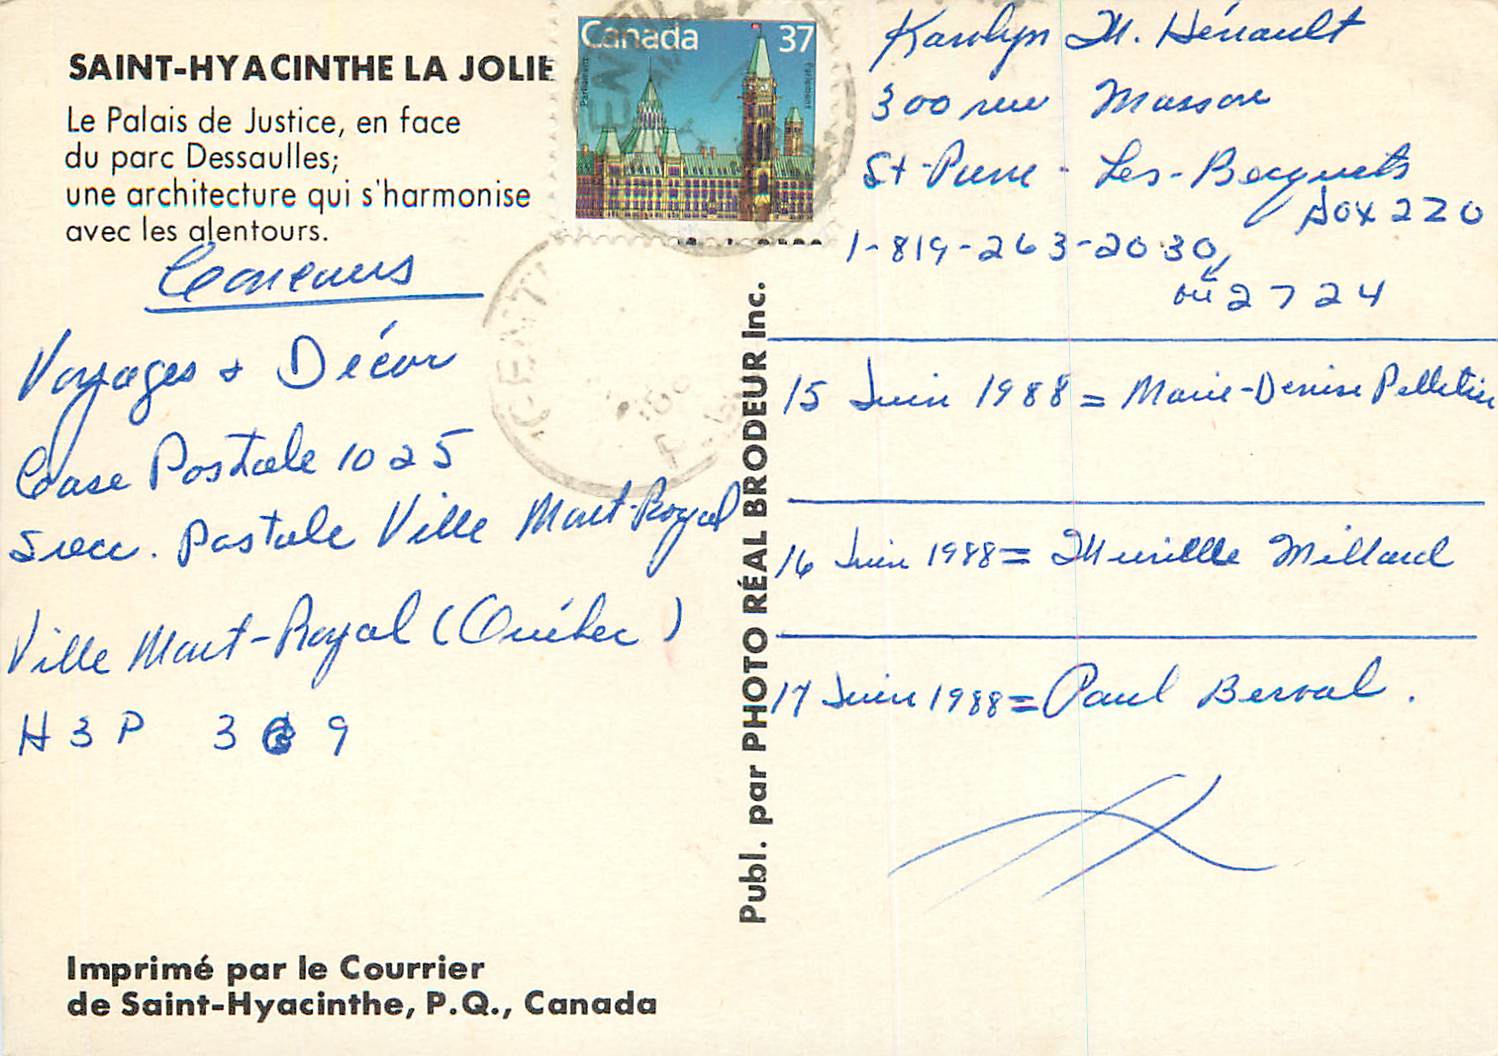 SAINT-HYACINTHE LA JOLIE
Le Palais de Justice, en face
du parc Dessaulles;
une architecture qui s'harmonise
avec les alentours.
Concours
Voyages & Décor
Case Postale 1025
Succ. Postale Ville Mont-Royal
Ville Mont-Royal (Québec)
H3P 3 9
Imprimé par le Courrier
de Saint-Hyacinthe, P.Q., Canada
Canada 37
Parlement
Publ. par PHOTO RÉAL BRODEUR Inc.
Karolyn M. Hénault
300 rue Masson
St-Pierre-Les-Becquets
Box 220
1-819-263-2030,
ou 2724
15 Juin 1988 = Marie-Denise Pelletier
16 Juin 1988 = Murielle Millard
17 Juin 1988 = Paul Berval.